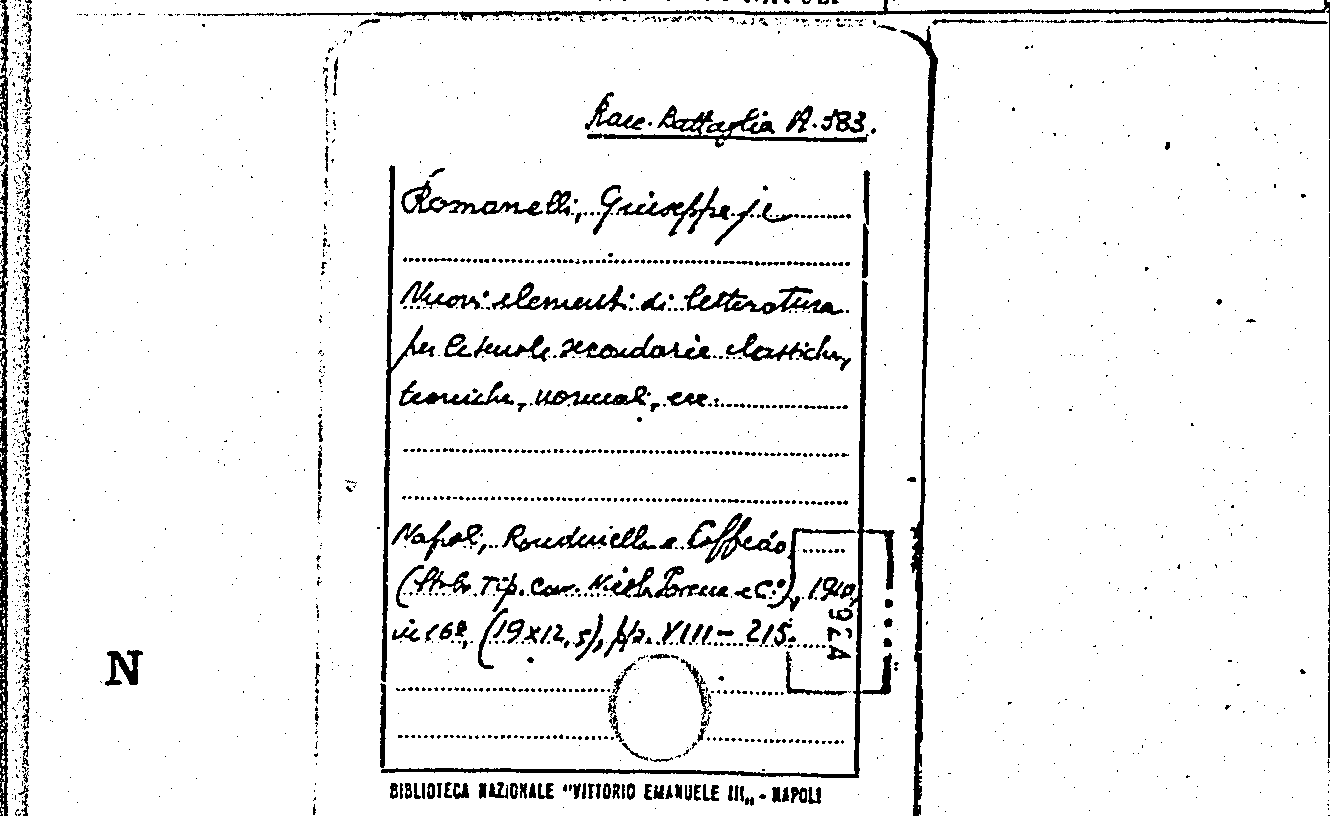 NAPOLI
Racc. Battaglia A. 583.
Romanelli, Giuseppe
Nuovi elementi di letteratura
per le scuole secondarie classiche,
tecniche, normali, ecc.
Napoli, Rondinella e Loffredo
(Stab. Tip. Cav. Nicola e C.º), 1910,
in 16º, (19x12,5), pp. VIII - 215.
924
N
BIBLIOTECA NAZIONALE "VITTORIO EMANUELE III„ - NAPOLI